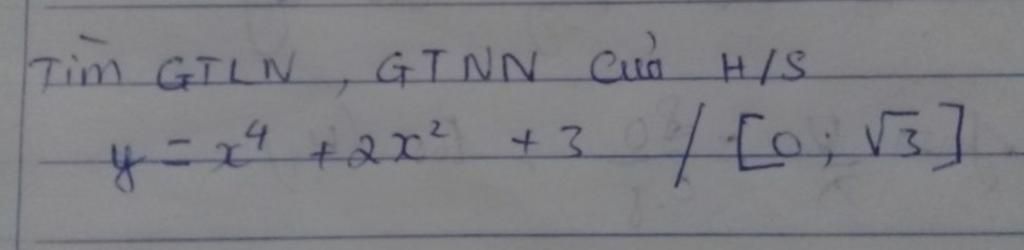 Tìm GTLN, GTNN của H/S
y = x⁴ + 2x² + 3 / [0; √3]